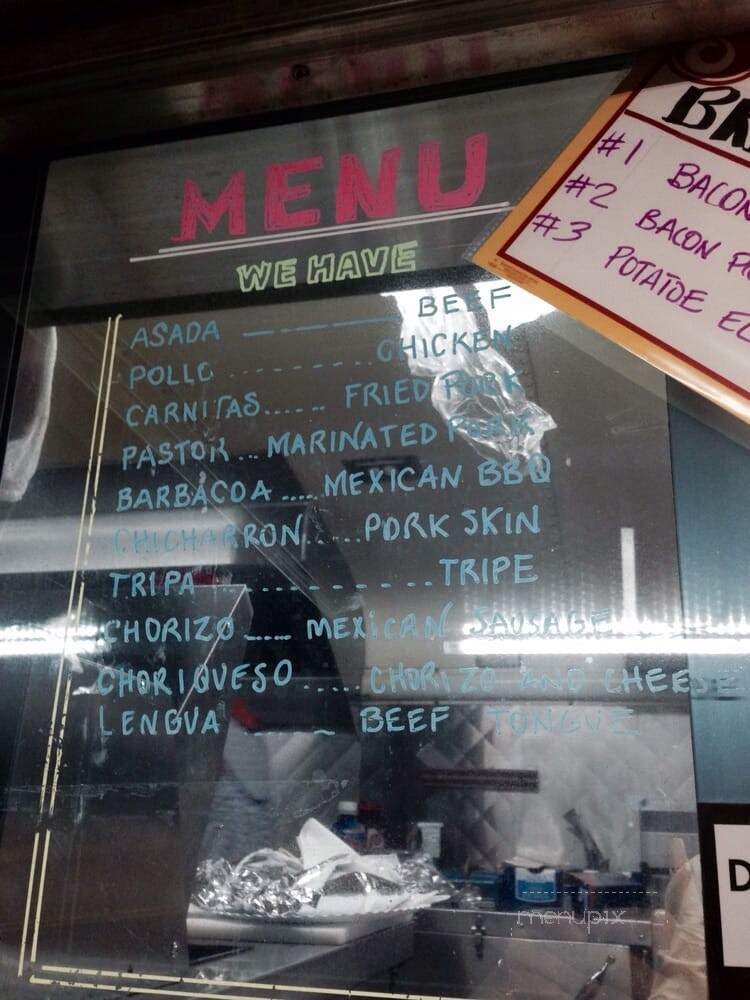 MENU
WE HAVE
ASADA --------- BEEF
POLLO -------- CHICKEN
CARNITAS...... FRIED PORK
PASTOR... MARINATED PORK
BARBACOA .....MEXICAN BBQ
CHICHARRON.....PORK SKIN
TRIPA ........... TRIPE
CHORIZO ..... MEXICAN SAUSAGE
CHORIQUESO ..... CHORIZO AND CHEESE
LENGUA ---- BEEF TONGUE
#1 BACON
#2 BACON
#3 POTATOE
D
menupix